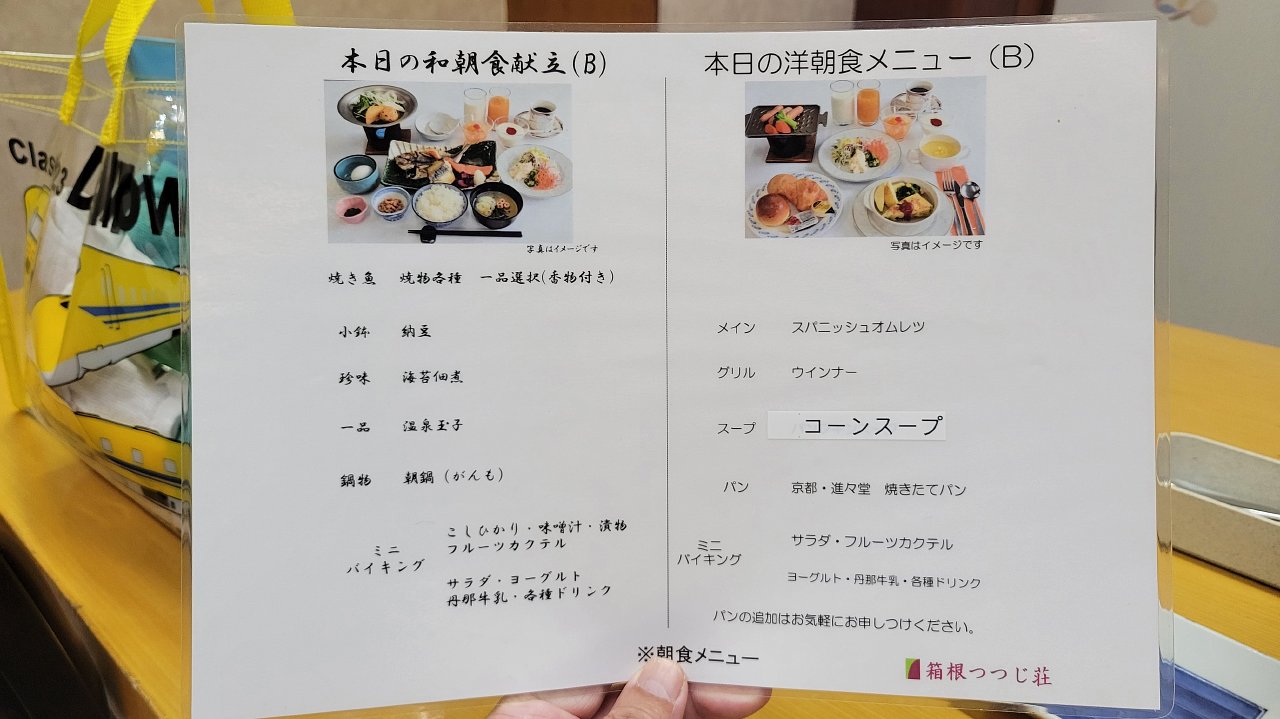 本日の和朝食献立(B)
写真はイメージです
焼き魚 焼物各種 一品選択(香物付き)
小鉢 納豆
珍味 海苔佃煮
一品 温泉玉子
鍋物 朝鍋(がんも)
ミニ
バイキング
こしひかり・味噌汁・漬物
フルーツカクテル
サラダ・ヨーグルト
丹那牛乳・各種ドリンク
本日の洋朝食メニュー(B)
写真はイメージです
メイン スパニッシュオムレツ
グリル ウインナー
スープ コーンスープ
パン 京都・進々堂 焼きたてパン
ミニ
バイキング
サラダ・フルーツカクテル
ヨーグルト・丹那牛乳・各種ドリンク
パンの追加はお気軽にお申しつけください。
※朝食メニュー
箱根つつじ荘